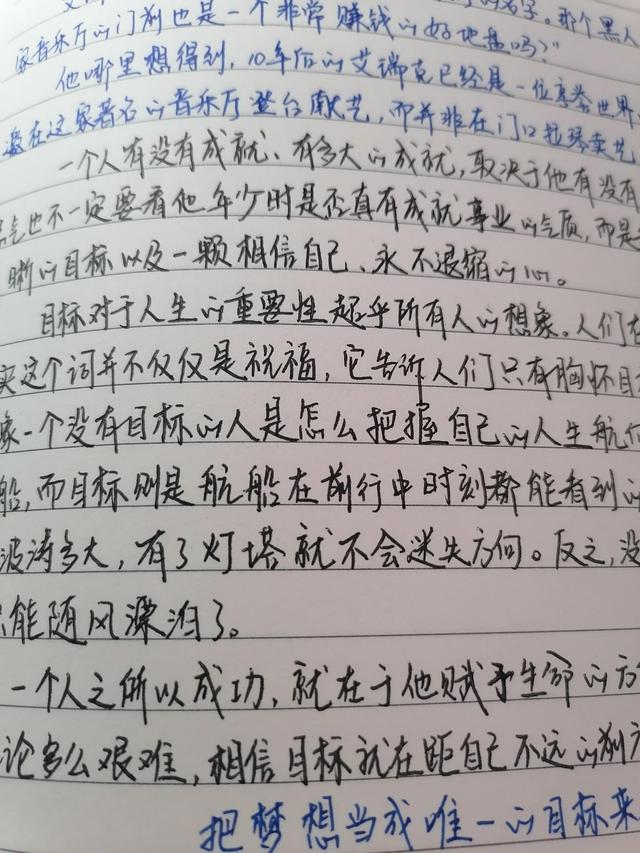 的名字。那个黑人
家音乐厅的门前也是一个非常赚钱的好地盘吗?”
他哪里想得到,10年后的艾瑞克已经是一位享誉世界
在这家著名的音乐厅登台献艺,而并非在门口拉琴卖艺
一个人有没有成就、有多大的成就,取决于他有没有
也不一定要看他年少时是否真有成就事业的气质,而是
晰的目标以及一颗相信自己、永不退缩的心。
目标对于人生的重要性超乎所有人的想象。人们在
实这个词并不仅仅是祝福,它告诉人们只有胸怀目
象一个没有目标的人是怎么把握自己的人生航
船,而目标则是航船在前行中时刻都能看到的
波涛多大,有了灯塔就不会迷失方向。反之,没
能随风漂泊了。
一个人之所以成功,就在于他赋予生命的方
论多么艰难,相信目标就在距自己不远的前方
把梦想当成唯一的目标来